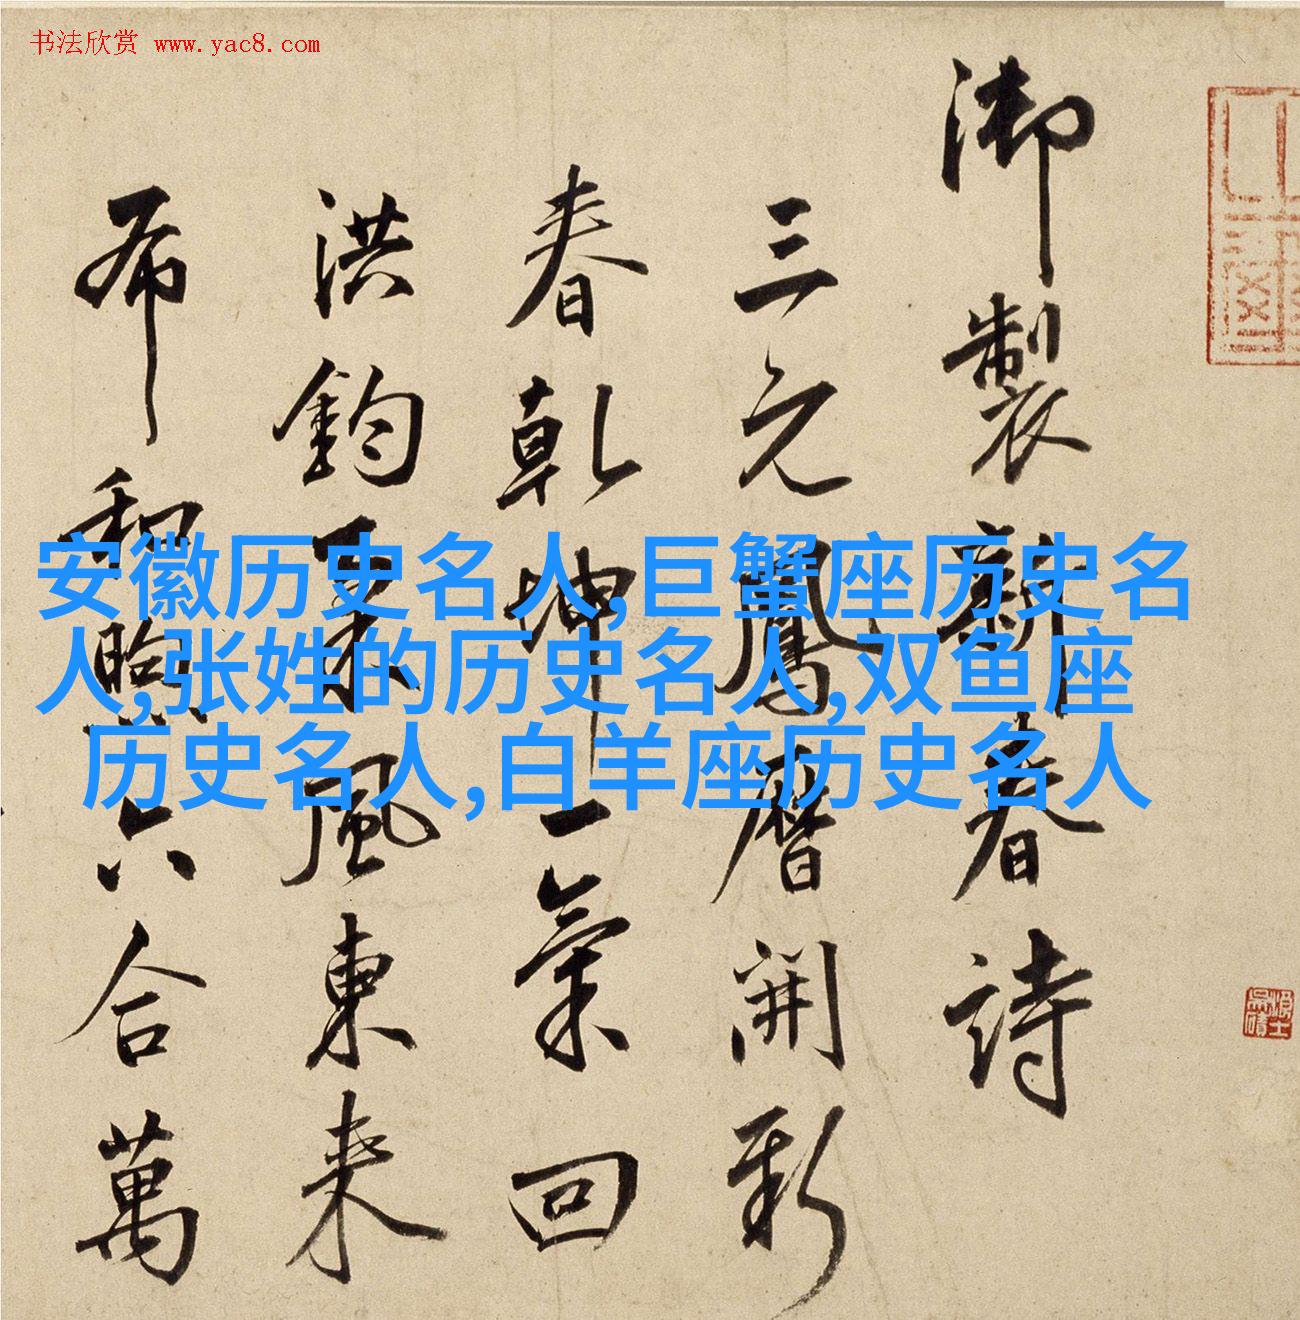 书法欣赏 www.yac8.com
御製新春詩
三元鳳曆開新
春乾坤一氣回
洪鈞風東来
布和煦六合萬
安徽历史名人,巨蟹座历史名
人,张姓的历史名人,双鱼座
历史名人,白羊座历史名人